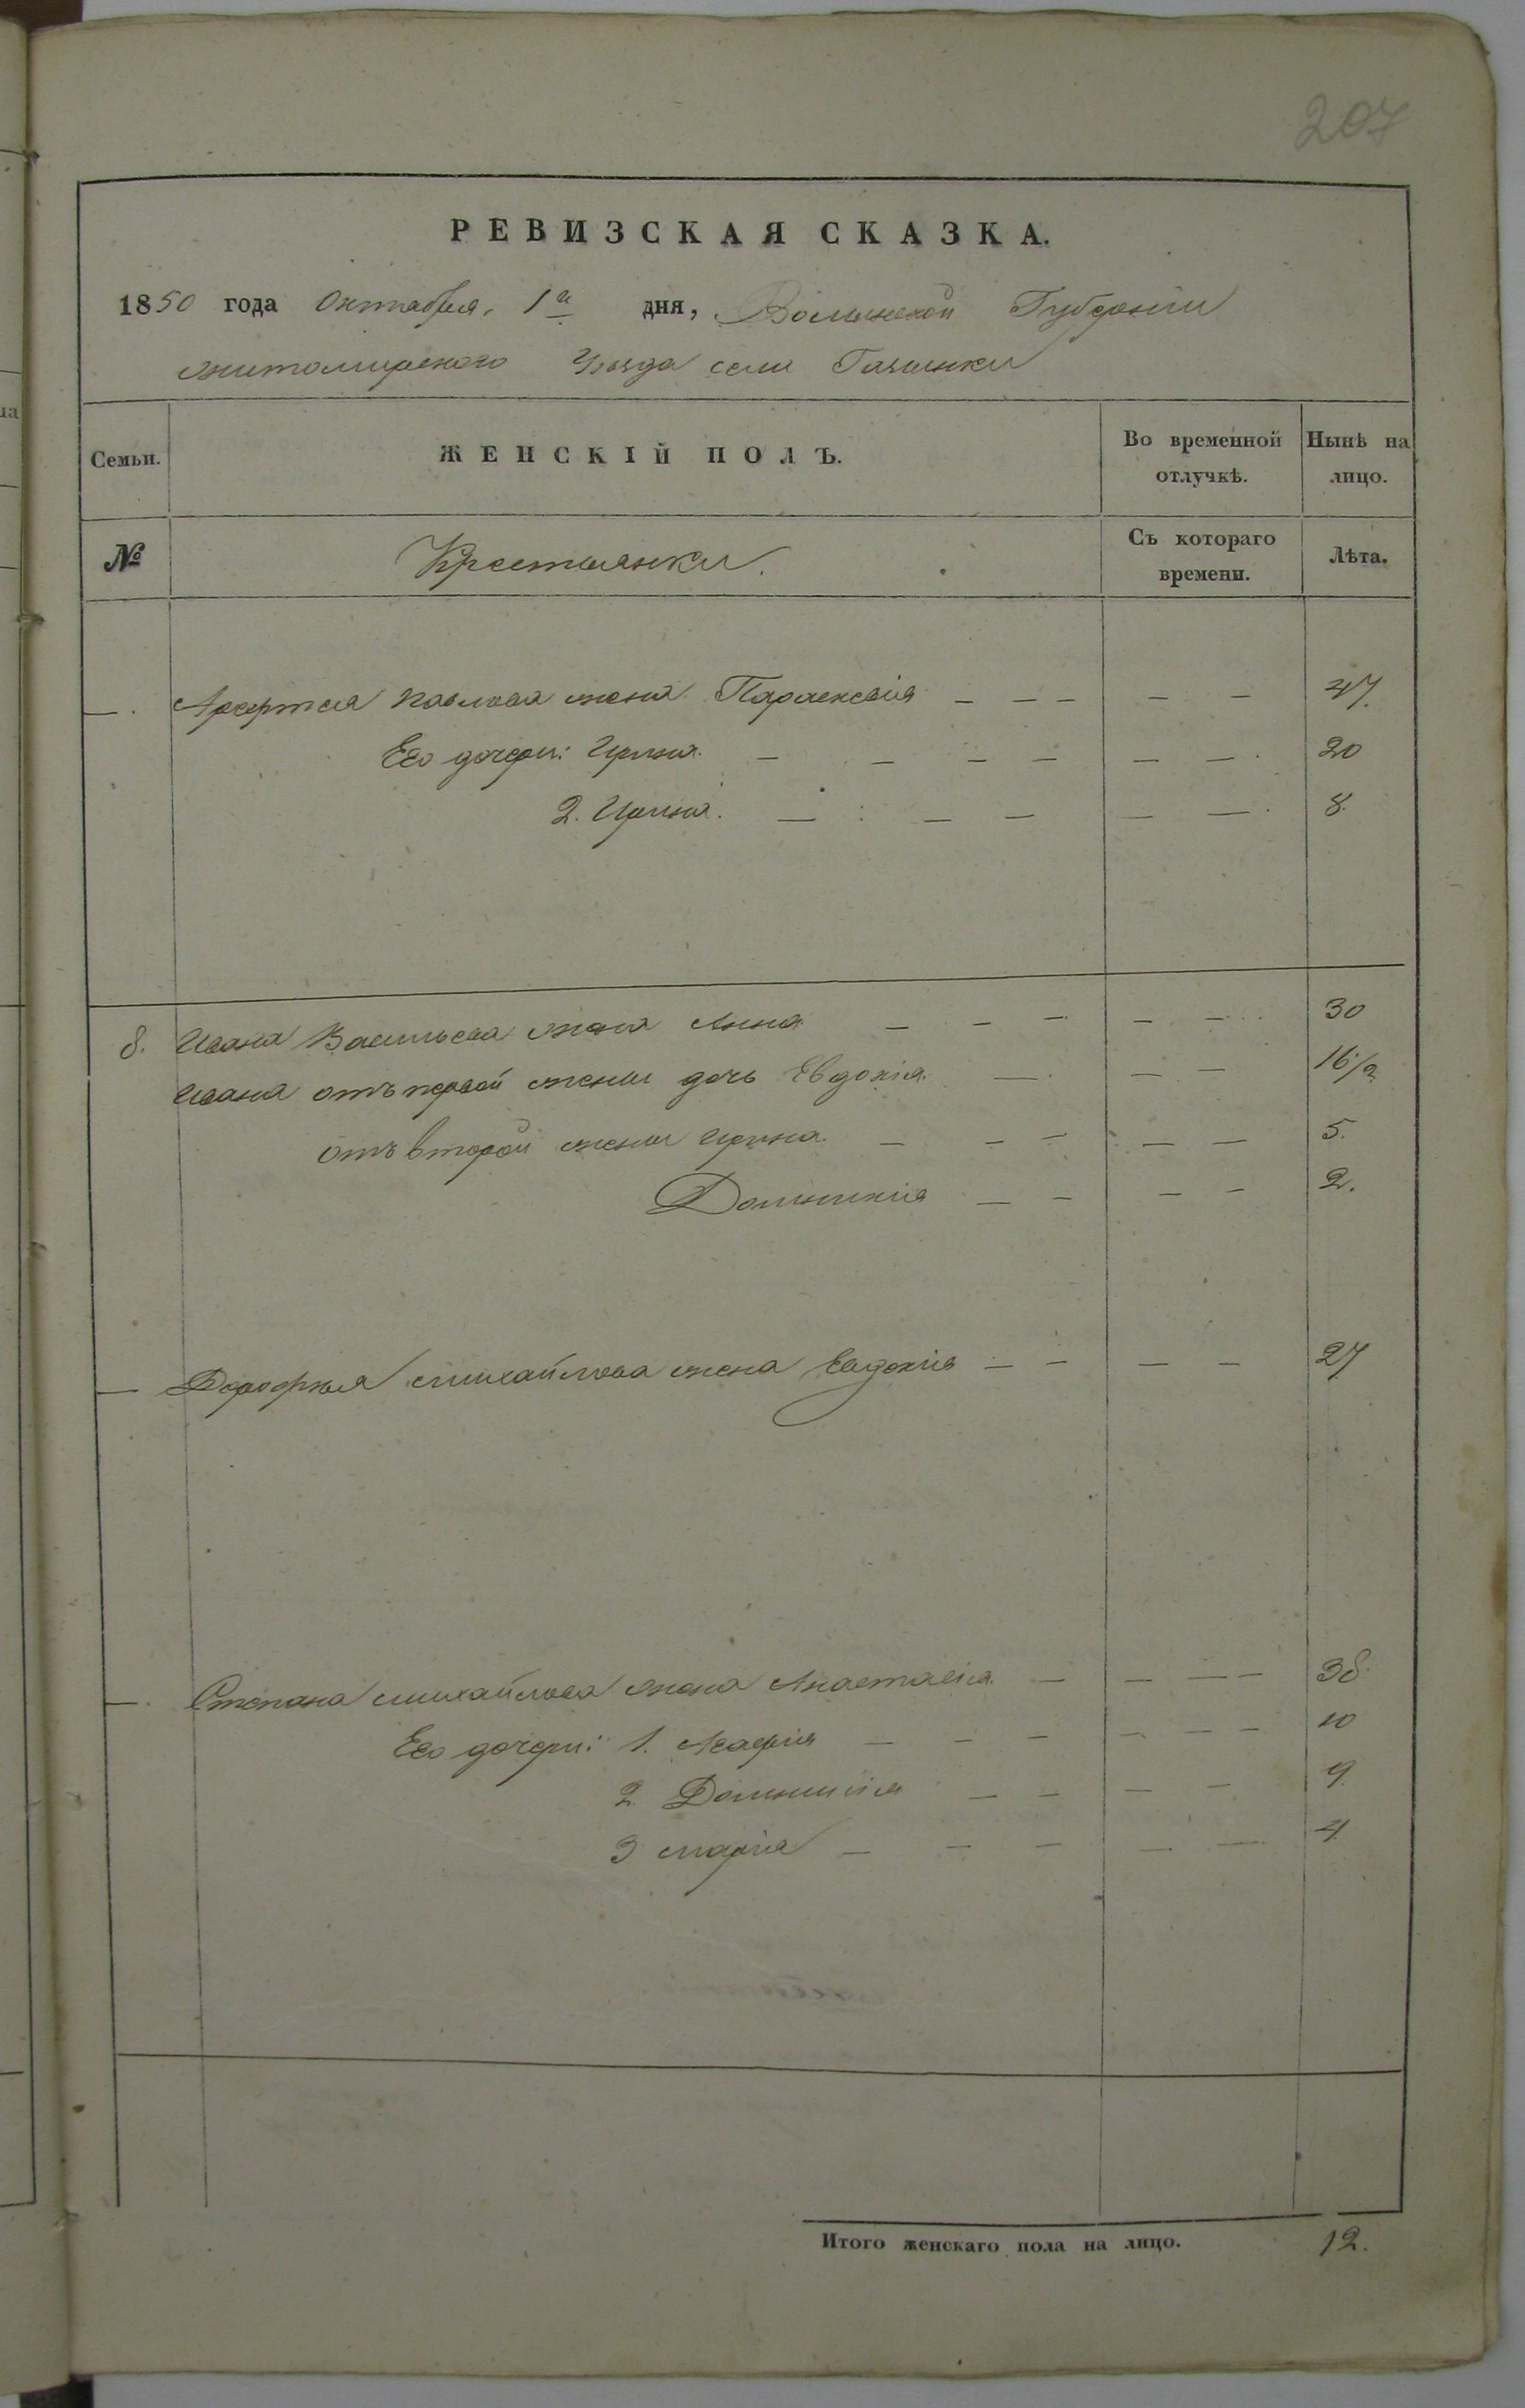 207
РЕВИЗСКАЯ СКАЗКА.
1850 года Октября, 1го дня, Волынской Губернии
житомирского Уезда села
Семьи.
ЖЕНСКІЙ ПОЛЪ.
Во временной отлучкѣ.
Нынѣ на лицо.
№
Крестьянки.
Съ котораго времени.
Лѣта.
—. Павлова жена Параскевія — — — — — 47.
Его дочери: Ирина. — — — — — —. 20
2. Ирина. — — — — —. 8.
8. Ивана Васильева жена Анна — — — — — 30
Ивана отъ первой жены дочь Евдокія. — — — 16 1/2
отъ второй жены Ирина. — — — — — 5.
Домникія — — — — 2.
— Дорофея михайлова жена Евдокія — — — — 27
—. Степана михайлова жена Анастасія. — — — — 38.
Его дочери: 1. Агафія — — — — — — 10
2. Домникія — — — — 9.
3 марія — — — — —. 4
Итого женскаго пола на лицо. 12.